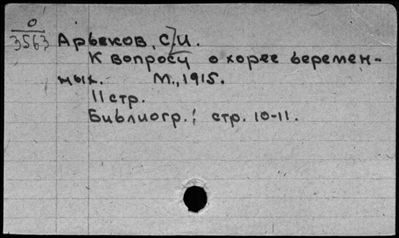 0
3563
Арьсков, С. И.
К вопросу о хорее беремен-
ных. М., 1915.
11 стр.
Библиогр.: стр. 10-11.